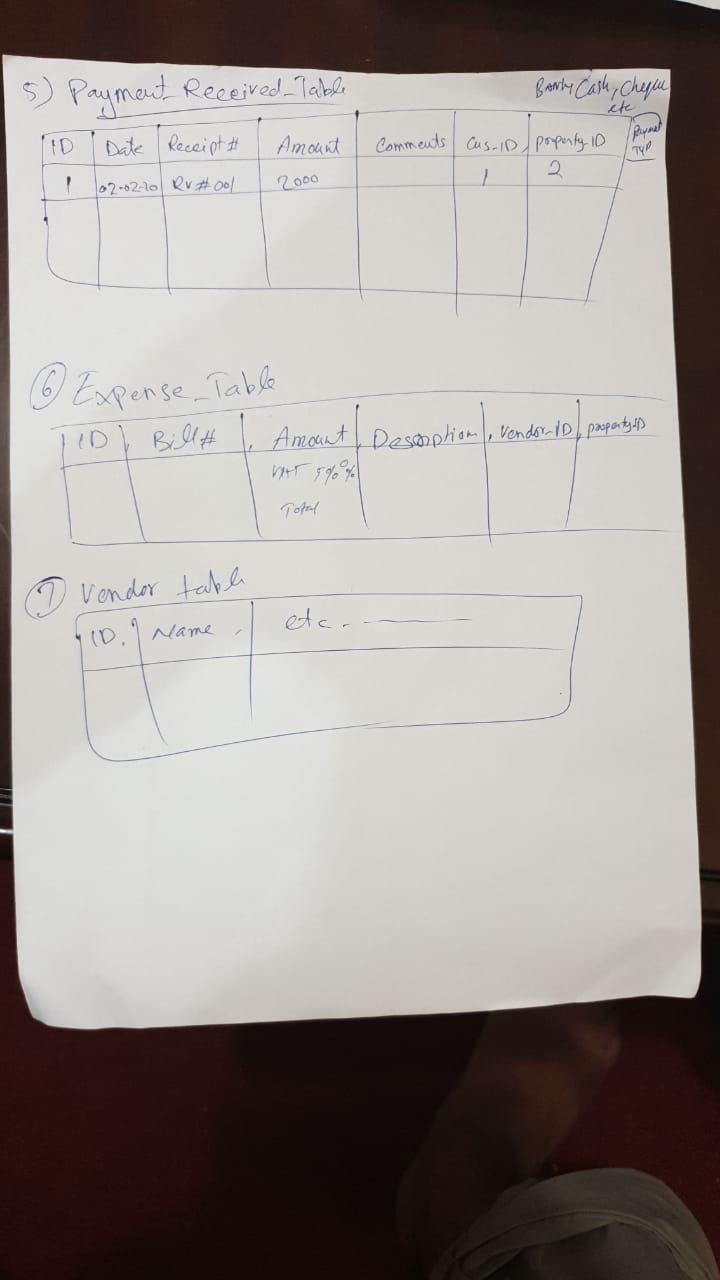 5) Payment Received_Table
Bank, Cash, Cheque
etc
ID Date Receipt # Amount Comments Cus_ID, property_ID Payment
Typ
1 02-02-20 RV#001 2000 1 2
6 Expense_Table
ID, Bill#, Amount, Description, Vendor_ID, propertyID
VAT 5%%
Total
7 Vendor table
ID, Name, etc.